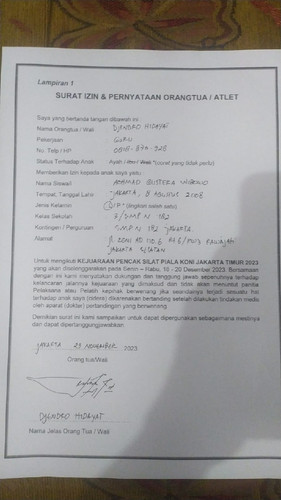 Lampiran 1
SURAT IZIN & PERNYATAAN ORANGTUA / ATLET
Saya yang bertanda tangan dibawah ini:
Nama Orangtua / Wali DJENDRO HIDAYAT
Pekerjaan GURU
No. Telp / HP
Status Terhadap Anda Ayah / Ibu / Wali *(coret yang tidak perlu)
Memberikan izin kepada anak saya yaitu:
Nama Siswa/i AHMAD
Tempat, Tanggal Lahir JAKARTA, 8 AGUSTUS 2008
Jenis Kelamin L / P* (lingkari salah satu)
Kelas Sekolah 7 / SMP N 182
Kontingen / Perguruan SMP N 182 JAKARTA
Alamat
JAKARTA SELATAN
Untuk mengikuti KEJUARAAN PENCAK SILAT PIALA KONI JAKARTA TIMUR 2023
yang akan diselenggarakan pada Senin – Rabu, 18 - 20 Desember 2023. Bersamaan
dengan ini kami menyatakan dukungan dan tanggung jawab sepenuhnya terhadap
kelancaran jalannya kejuaraan yang dimaksud dan tidak akan menuntut panitia
Pelaksana atau Pelatih kapihak berwenang jika seandainya terjadi sesuatu hal
terhadap anak saya (cidera) dikarenakan bertanding setelah dilakukan tindakan medis
oleh aparat (dokter) pertandingan yang berwenang.
Demikian surat ini kami sampaikan untuk dapat dipergunakan sebagaimana mestinya
dan dapat dipertanggungjawabkan.
JAKARTA 29 NOVEMBER 2023
Orang tua/Wali
DJENDRO HIDAYAT
Nama Jelas Orang Tua / Wali